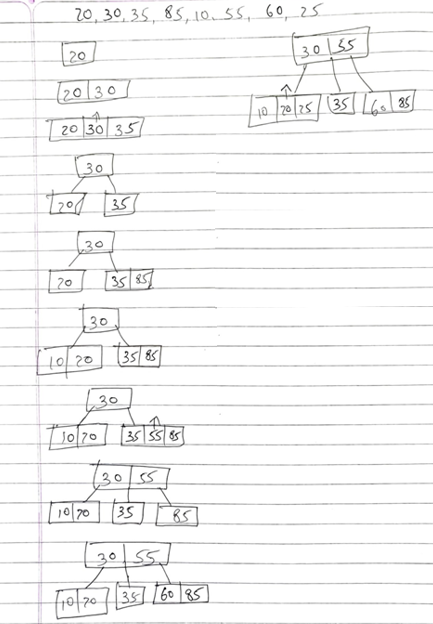 20, 30, 35, 85, 10, 55, 60, 25
20
20 30
20 30 35
30
20 35
30
20 35 85
30
10 20 35 85
30
10 20 35 55 85
30 55
10 20 35 85
30 55
10 20 35 60 85
30 55
10 20 25 35 60 85